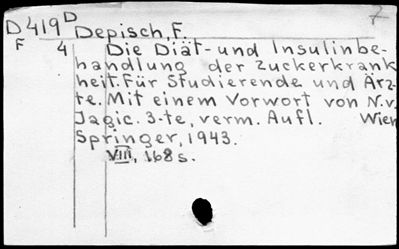 7
D419D Depisch, F.
F 4 Die Diät- und Insulinbe-
handlung der Zuckerkrank
heit. Für Studierende und Ärz-
te. Mit einem Vorwort von N.v.
Jagic. 3-te, verm. Aufl. Wien
Springer, 1943.
VIII, 168 s.